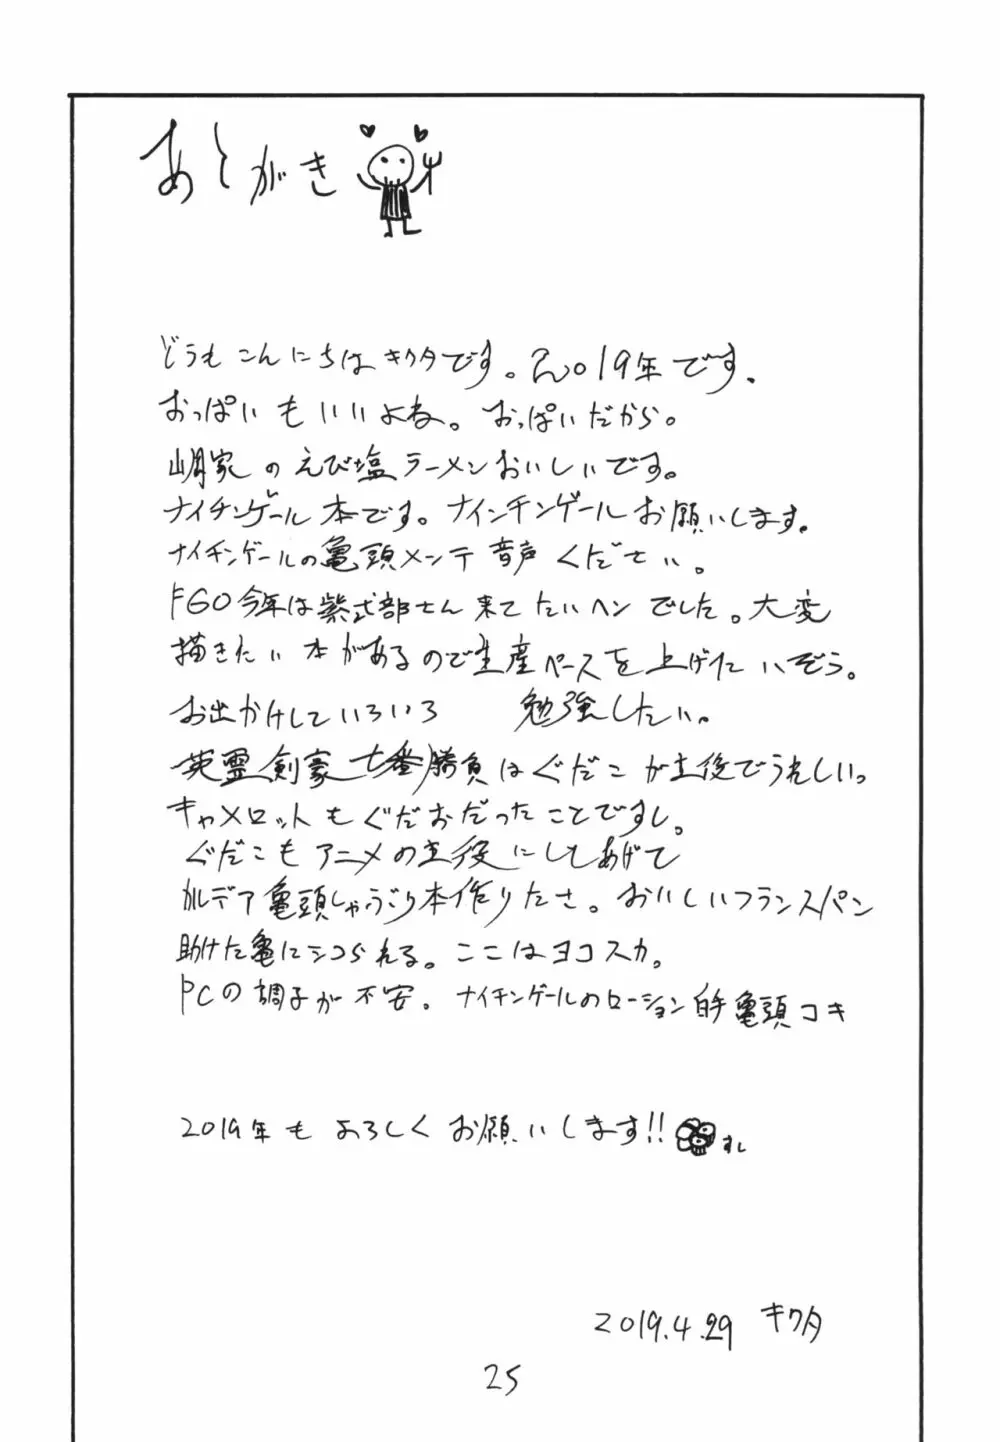 あとがき
どうもこんにちはキクタです。2019年です。
おっぱいもいいよね。おっぱいだから。
家のえび塩ラーメンおいしいです。
ナイチンゲール本です。ナインチンゲールお願いします。
ナイチンゲールの亀頭メンテ音声ください。
FGO今年は紫式部さん来てたいヘンでした。大変
描きたい本があるので生産ペースを上げたいぞう。
お出かけしていろいろ 勉強したい。
英霊剣豪七番勝負はぐだこが主役でうれしい。
キャメロットもぐだおだったことですし。
ぐだこもアニメの主役にしてあげて
カルデア亀頭しゃぶり本作りたさ。おいしいフランスパン
助けた亀にシコられる。ここはヨコスカ。
PCの調子が不安。ナイチンゲールのローション手亀頭コキ
2019年もよろしくお願いします!!
すし
2019.4.29 キクタ
25